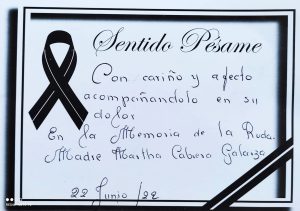 Sentido Pésame
Con cariño y afecto
acompañandolo en su
dolor
En la Memoria de la Rvda.
Madre Martha Cabrera Galarza
22 Junio/22